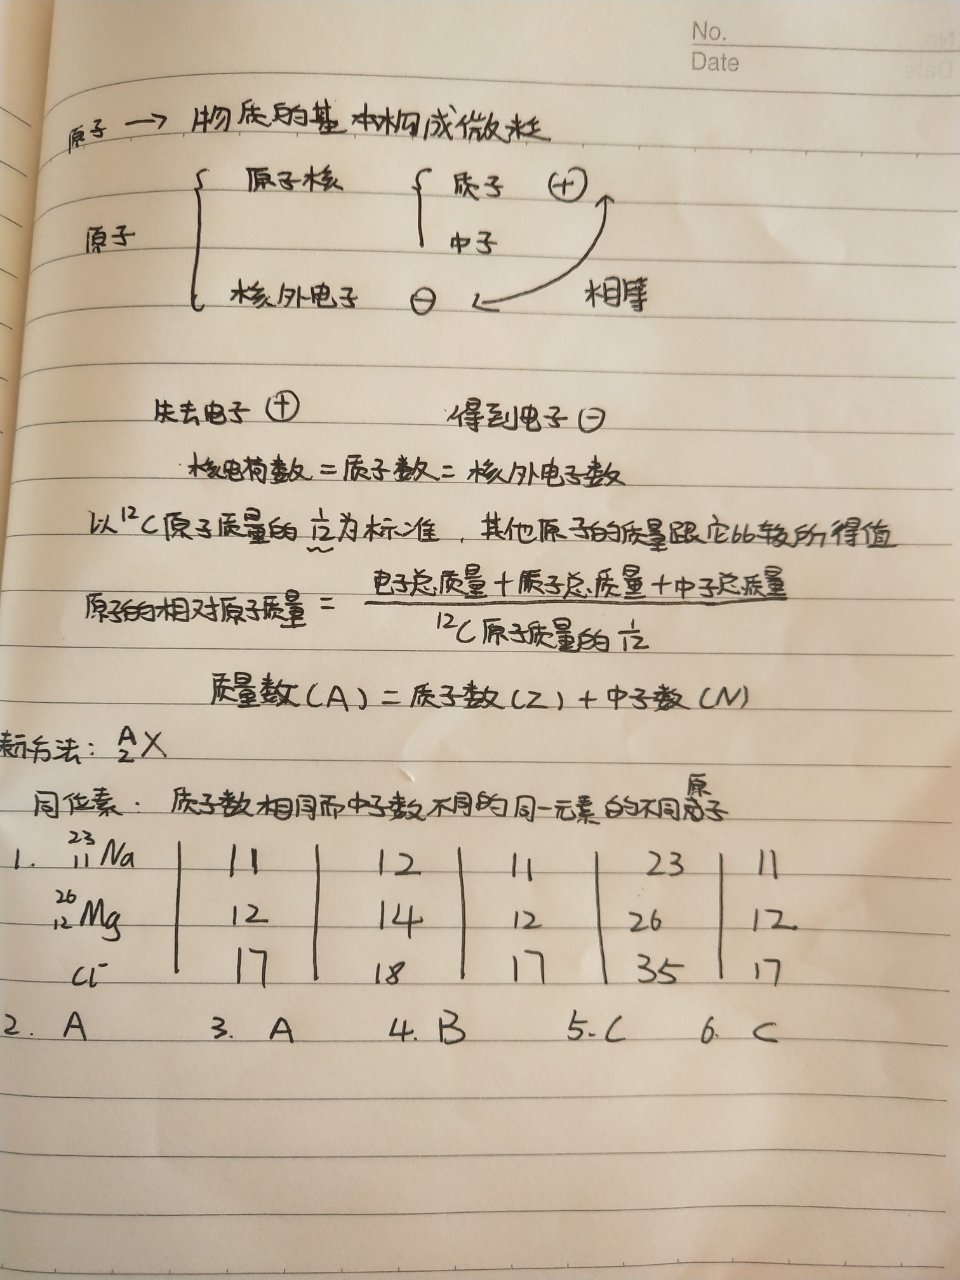 No.
Date
原子 → 物质的基本构成微粒
原子核 质子 ⊕
原子 中子
核外电子 ⊖ 相等
失去电子 ⊕ 得到电子 ⊖
核电荷数 = 质子数 = 核外电子数
以¹²C原子质量的 1/12 为标准，其他原子的质量跟它比较所得值
原子的相对原子质量 = 电子总质量 + 质子总质量 + 中子总质量
¹²C原子质量的 1/12
质量数(A) = 质子数(Z) + 中子数(N)
表示方法: A Z X
同位素: 质子数相同而中子数不同的同一元素的不同原子
1. ²³₁₁Na | 11 | 12 | 11 | 23 | 11
²⁶₁₂Mg | 12 | 14 | 12 | 26 | 12
Cl⁻ | 17 | 18 | 17 | 35 | 17
2. A 3. A 4. B 5. C 6. C